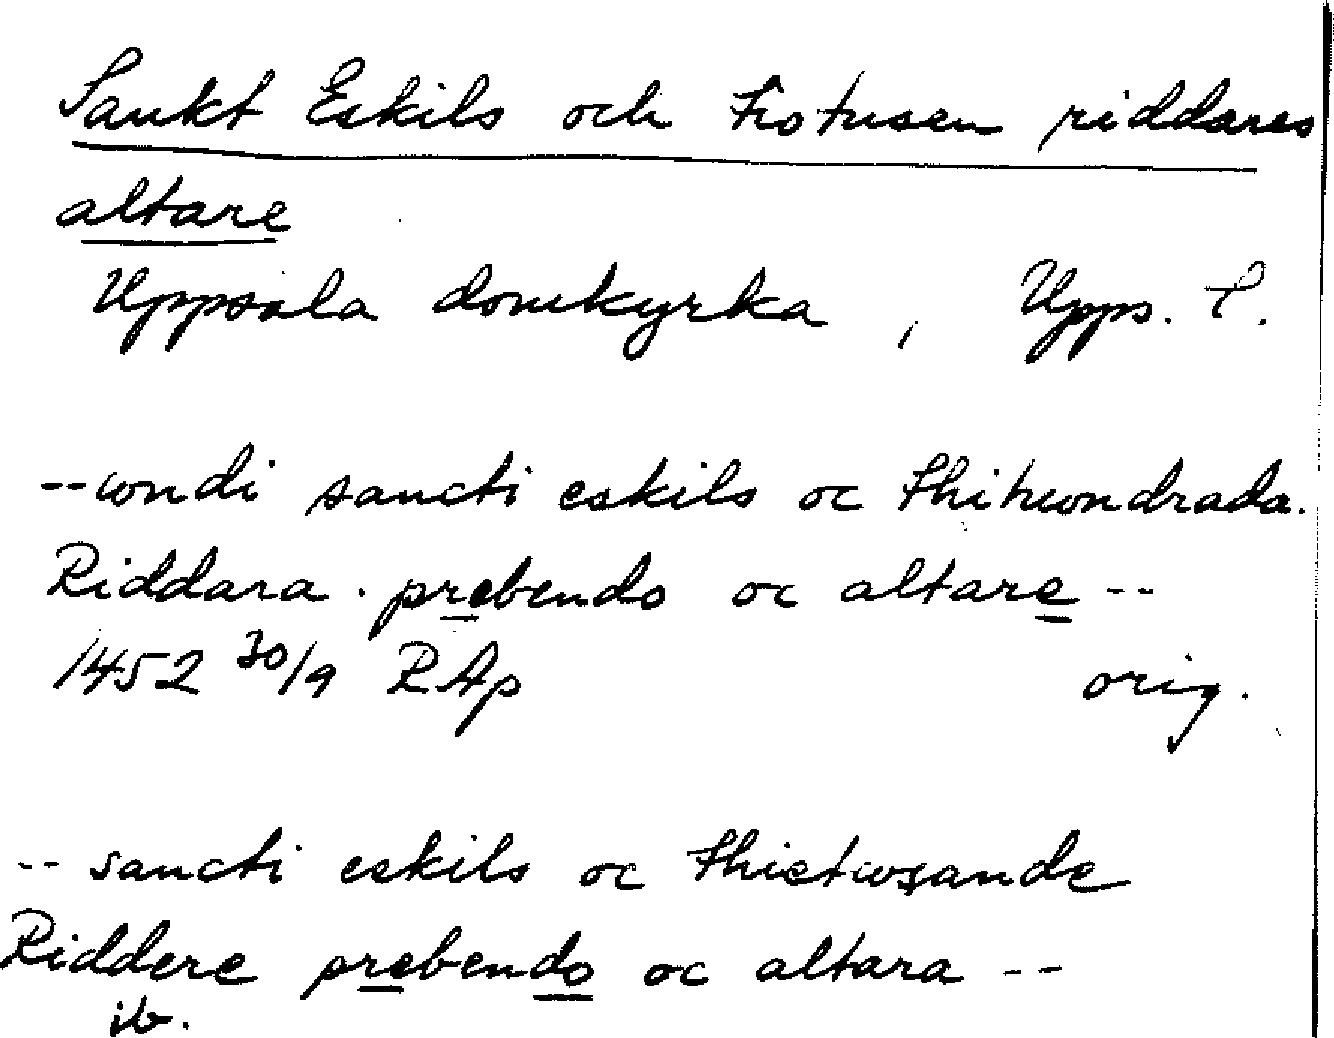 Sankt Eskils och Tiotusen riddares
altare
Uppsala domkyrka, Upps. l.
--wndi sancti eskils oc thitwndrada.
Riddara. prebendo oc altare --
1452 30/9 RAp orig.
-- sancti eskils oc thietwsande
Riddere prebendo oc altara --
ib.